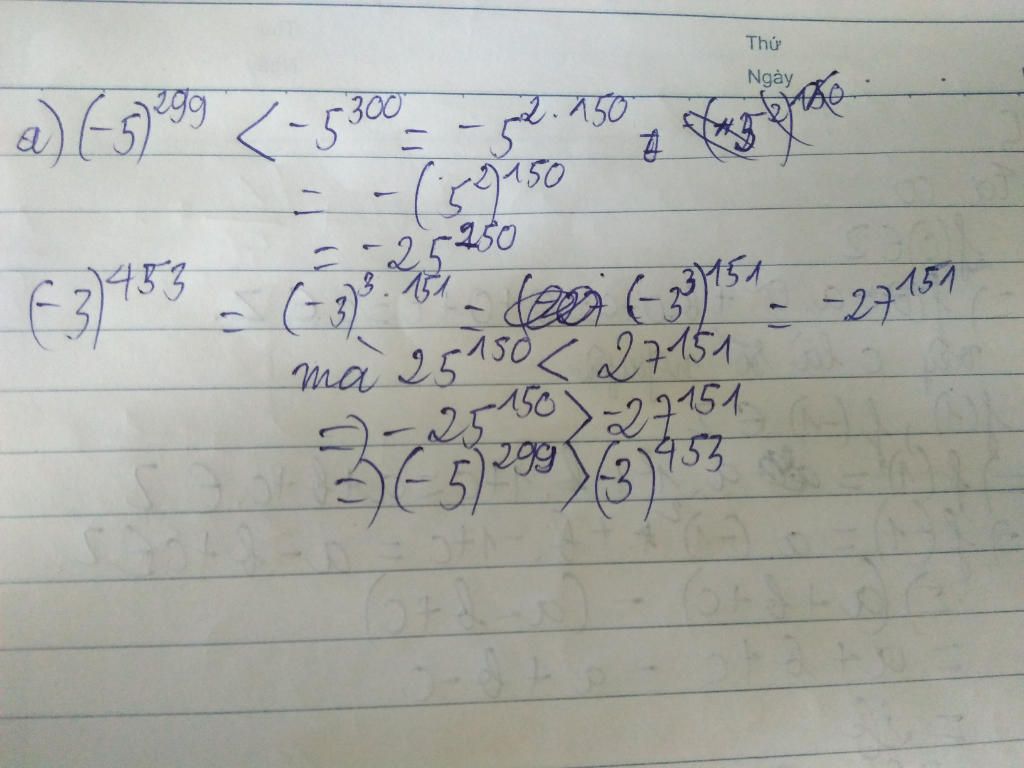 Thứ
Ngày
a) (-5)^299 < -5^300 = -5^2.150
= -(5^2)^150
= -25^250
(-3)^453 = (-3)^3.151 = (-3^3)^151 = -27^151
mà 25^150 < 27^151
=> -25^150 > -27^151
=> (-5)^299 > (-3)^453